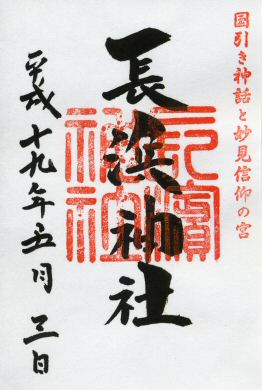 國引き神話と妙見信仰の宮
長浜神社
平成十九年五月三日
長濱神社